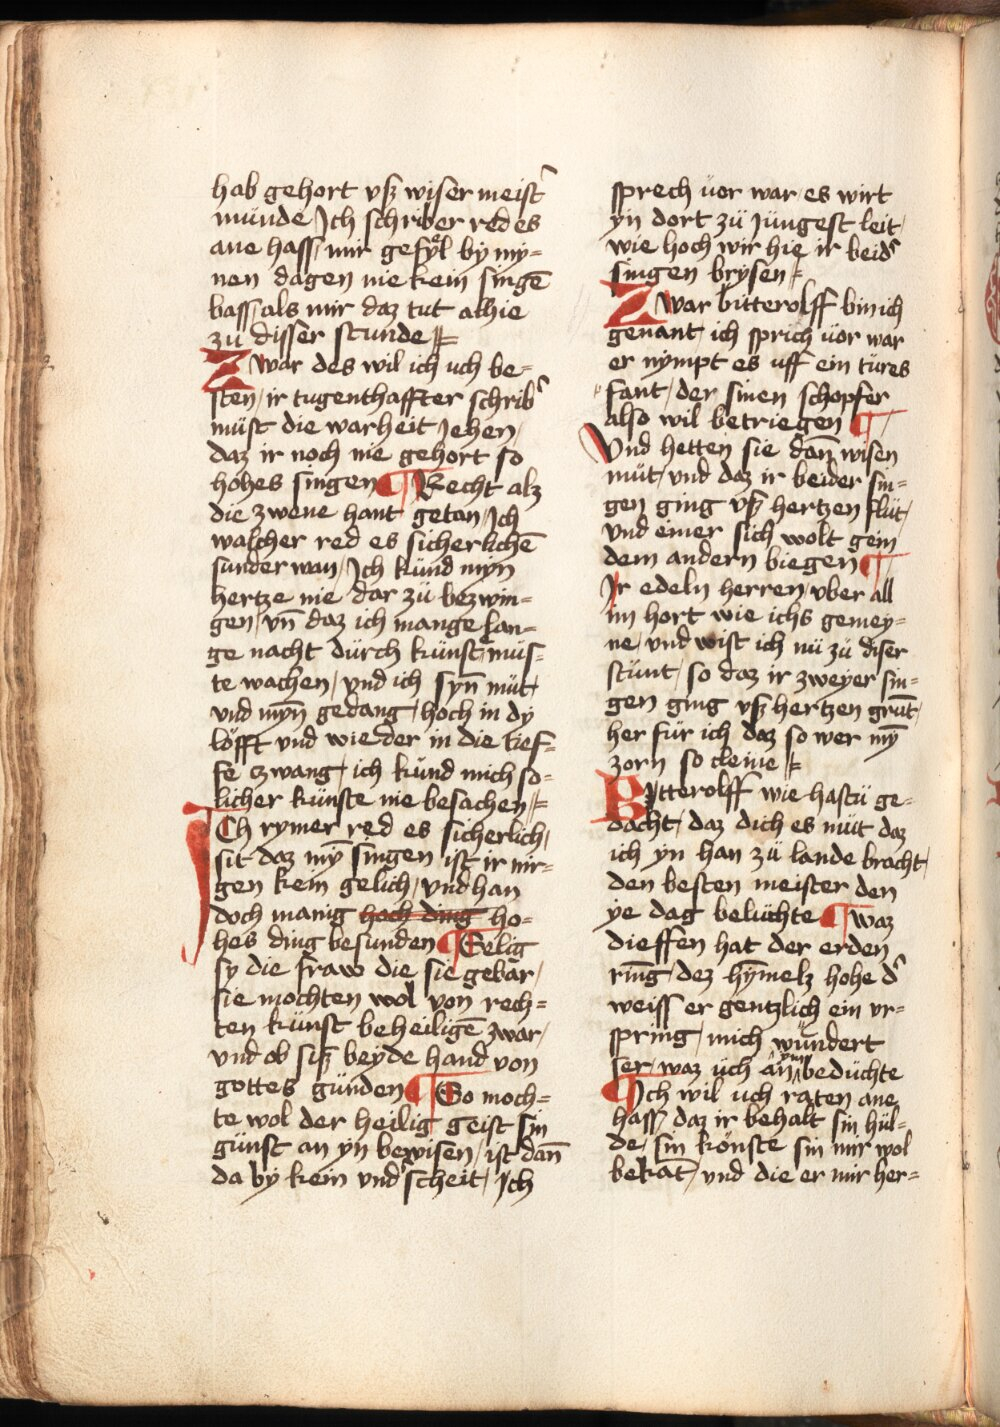 hab gehort vsz wiser meist̾
munde Ich schriber red es
ane hass / mir gefyͤl by my=
nen dagen nie kein singē
bass / als mir daz tut alhie
zu disser stunde /=
Zwar des wil ich uch be=
sten / ir tugenthaffter schrib̾
müst die warheit Jehen /
daz ir noch nie gehort so
hohes singen ¶ Recht alz
die zwene hant getan / Ich
walcher red es sicherlichē
sunder wan / Ich kund myn
hertze nie dar zü bezwin=
gen / vn̄ daz ich mange lan=
ge nacht dürch künst müs=
te wachen / vnd ich syn̄ müt
vnd myn̄ gedang / hoch in dy
löfft vnd wieder in die tief=
fe czwang / ich kund mich so=
licher künste nie besachen /=
ICh rymer red es sicherlich /
sit daz mȳ singen ist ir nir=
gen kein gelich / vnd han
doch manig hoch ding ho=
hes ding besunden ¶ Selig
sy die fraw die sie gebar /
sie mochten wol von rech=
ten künst beheiligē zwar /
vnd ob sisz beyde hand von
gottes günden ¶ So moch=
te wol der heilig geist sin
günst an yn bewisen / ist dan̄
da by kein vnd̾scheit / Ich
sprech üor war / es wirt
yn dort zü Jüngest leit /
wie hoch wir hie ir beid̾
singen brysen /=
Zwar bitterolff bin ich
genant / ich sprich üor war
er nympt es uff ein türes
fant / der sinen schopfer
also wil betriegen ¶
Vnd hetten sie dan̄ wisen
müt / vnd daz ir beider sin=
gen ging vsz hertzen flüt /
vnd einer sich wolt gein
dem andern biegen ¶
Ir edeln herren / vber all
im hort wie ichs gemey=
ne / vnd wist ich nü zü diser
stünt / so daz ir zweyer sin=
gen ging vsz hertzen grūt /
her für ich daz so wer mȳ
zorn so cleine /=
Bitterolff wie hastü ge=
dacht / daz dich es müt daz
ich yn han zü lande bracht /
den besten meister den
ye dag belüchte ¶ waz
dieffen hat der erden
rin̄g / dez hy̅melz hohe d̾
weiss er gentzlich ein vr=
spring / mich wündert
ser / waz üch an ym bedüchte
¶ Ich wil uch raten ane
hass / daz ir behalt sin hül=
de / sin könste sin mir wol
bekāt / vnd die er mir her=